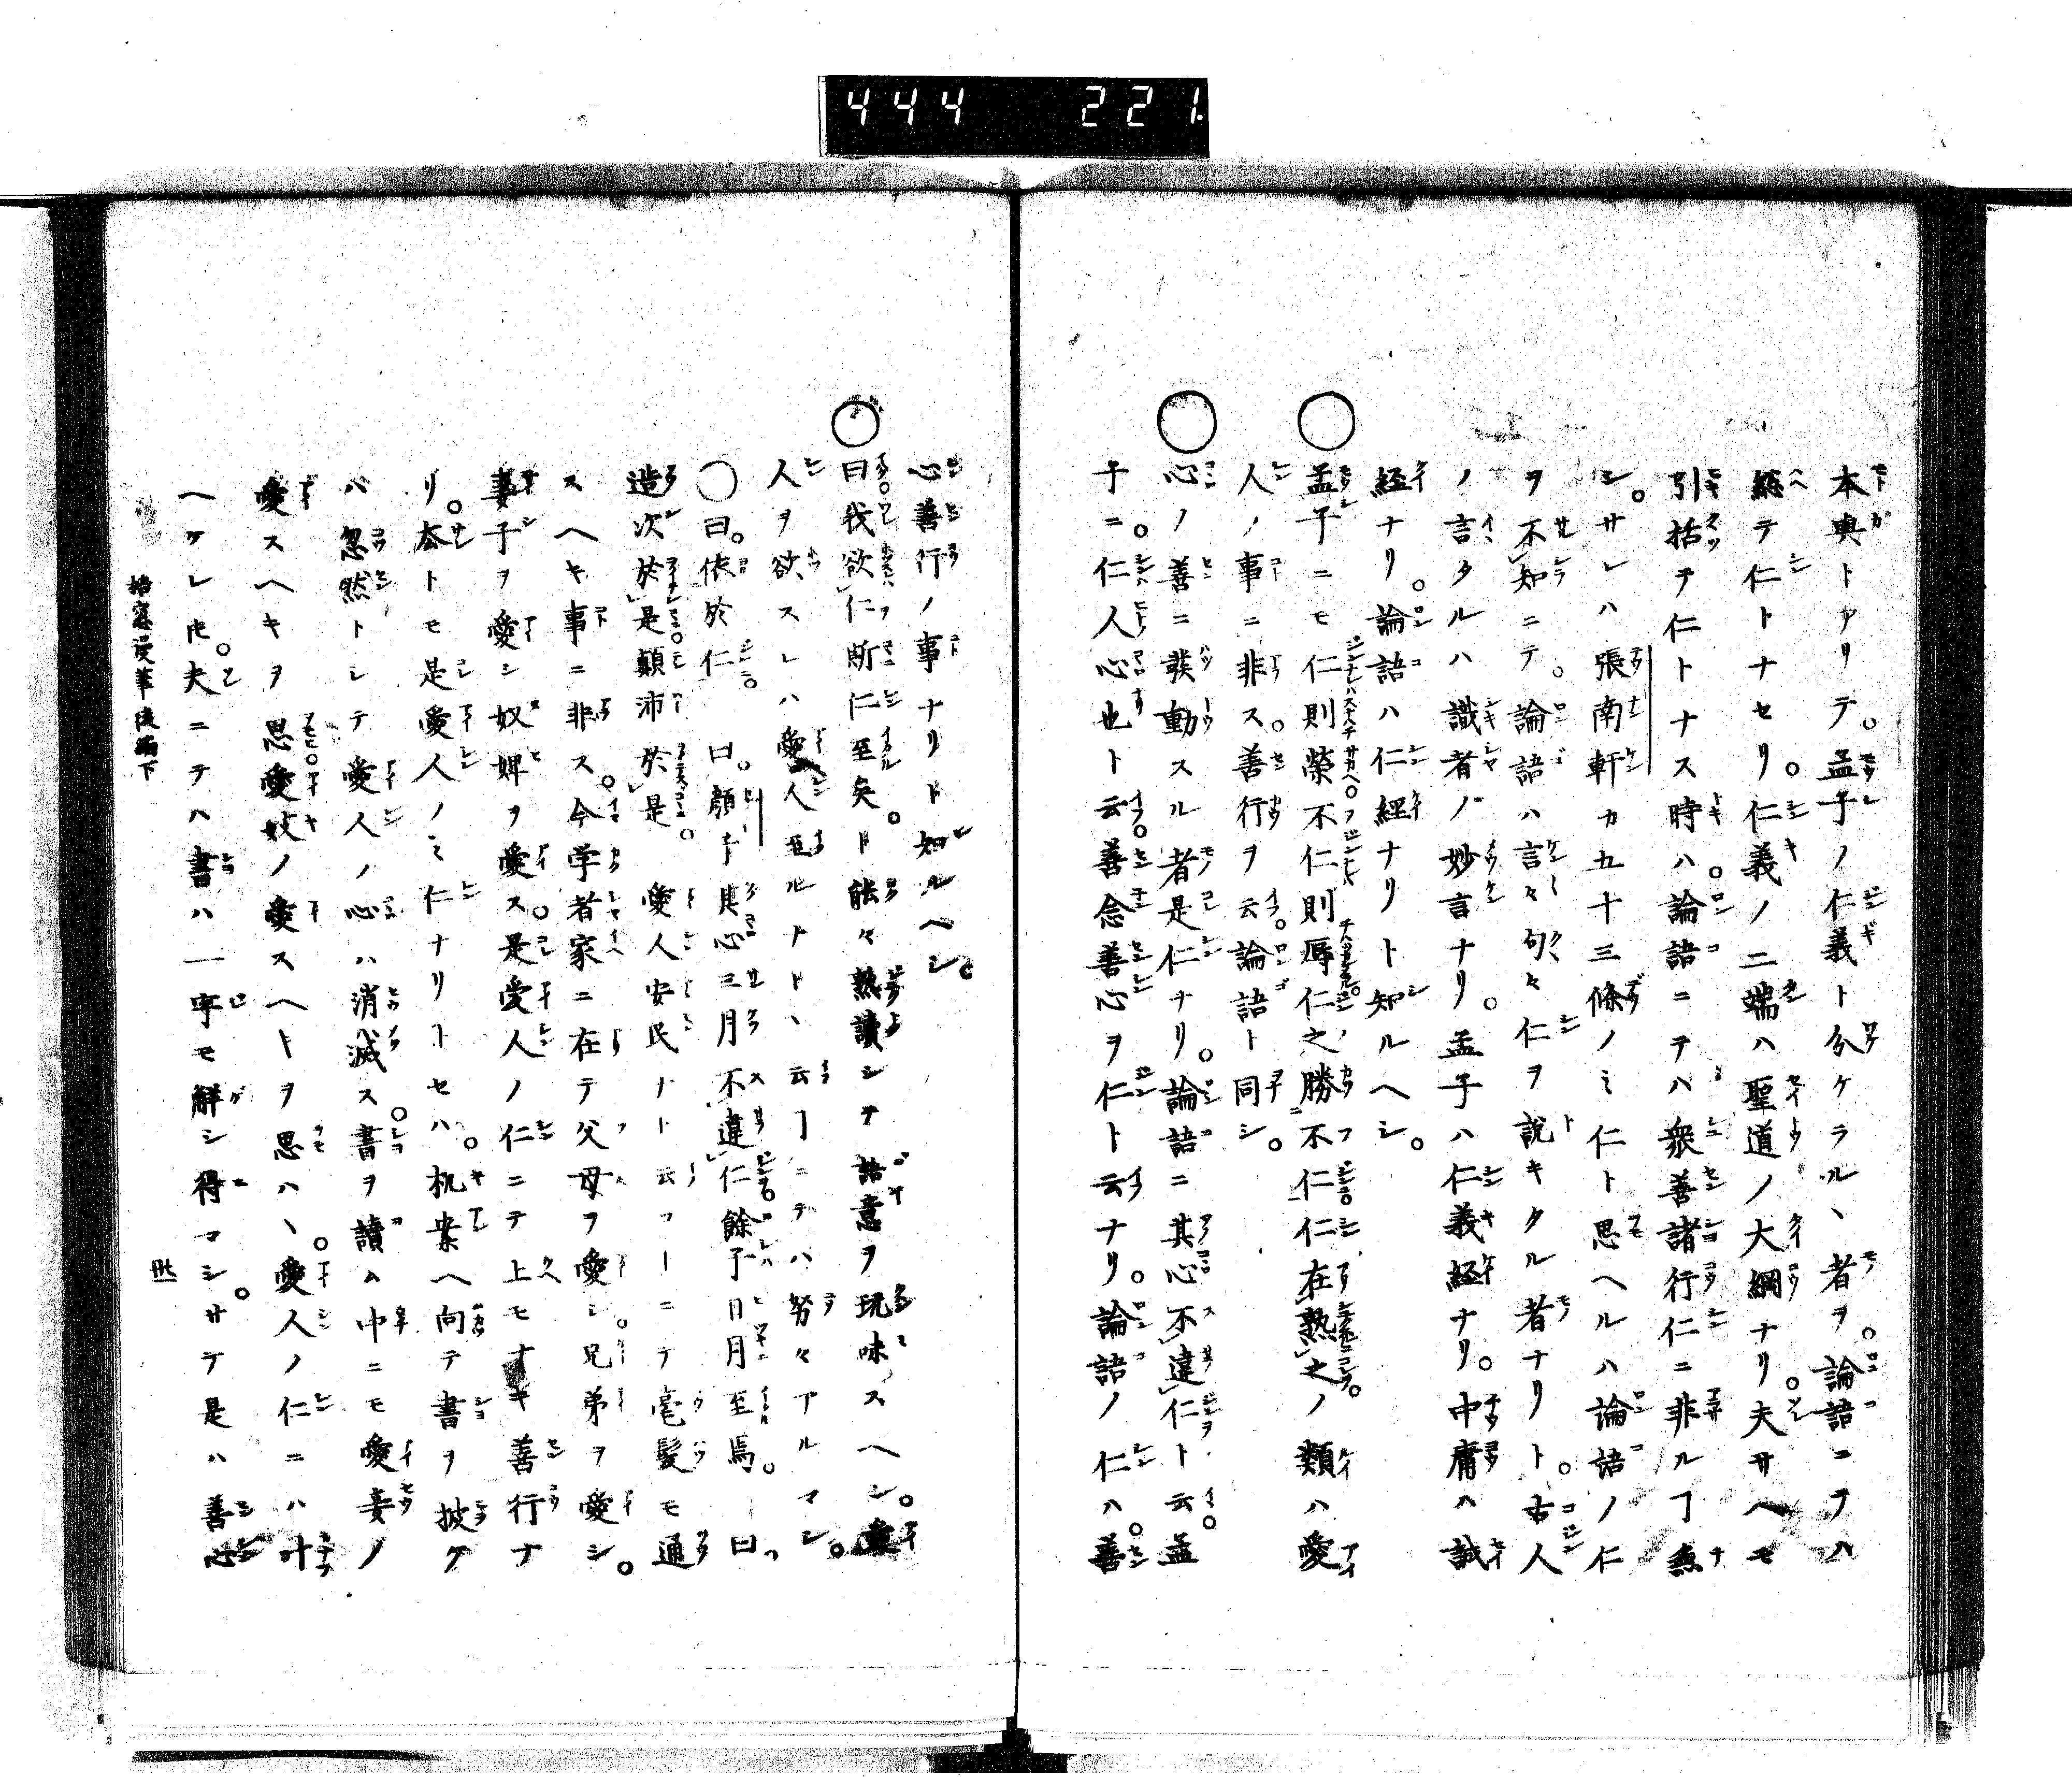 444 221
本與トアリテ。孟子ノ仁義ト分ケラルヽ者ヲ。論語ニヲハ
總テ仁トナセリ。仁義ノ二端ハ聖道ノ大綱ナリ。夫サヘモ
引括テ仁トナス時ハ。論語ニテハ衆善諸行仁ニ非ルヿ無
シ。サレハ張南軒カ五十三條ノミ仁ト思ヘルハ論語ノ仁
ヲ不知ニテ。論語ハ言々句々仁ヲ説キタル者ナリト。古人
ノ言タルハ識者ノ妙言ナリ。孟子ハ仁義経ナリ。中庸ハ誠
経ナリ。論語ハ仁経ナリト知ルヘシ。
○孟子ニモ仁則榮不仁則辱仁之勝不仁仁在熟之ノ類ハ愛
人ノ事ニ非ス。善行ヲ云。論語ト同シ。
○心ノ善ニ發動スル者是仁ナリ。論語ニ其心不違仁ト云。孟
子ニ。仁人心也ト云。善念善心ヲ仁ト云ナリ。論語ノ仁ハ。善
心善行ノ事ナリト知ルヘシ。
○曰我欲仁斯仁至矣ト能々熟讀シテ語意ヲ玩味スヘシ。愛
人ヲ欲スレハ愛人至ルナドヽ云ヿニテハ努々アルマシ。
○曰。依於仁 曰。顔子其心三月不違仁餘子日月至焉。曰
造次於是顛沛於是。愛人安民ナト云フーニテ毫髮モ通
スヘキ事ニ非ス。今学者家ニ在テ父母ヲ愛シ兄弟ヲ愛シ。
妻子ヲ愛シ奴婢ヲ愛ス。是愛人ノ仁ニテ上モナキ善行ナ
リ。尓トモ是愛人ノミ仁ナリトセハ。机案ヘ向テ書ヲ披ク
バ忽然トシテ愛人ノ心ハ消滅ス。書ヲ讀ム中ニモ愛妾ノ
愛スヘキヲ思愛妓ノ愛スヘキヲ思ハヽ。愛人ノ仁ニハ叶
ヘケレ𪜈。夫ニテハ書ハ一字モ解シ得マシ。サテ是ハ善心
梧窓漫筆後編下
丗一